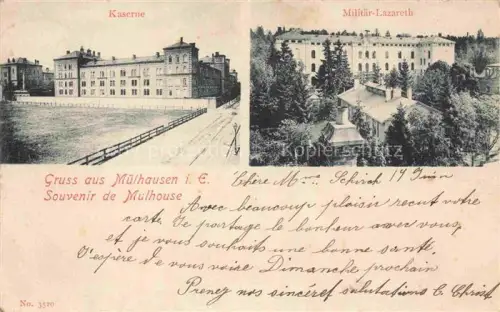 Kaserne
Militär-Lazareth
Gruss aus Mülhausen i. E.
Souvenir de Mulhouse
Chère Mme Schirch 14 Juin
Avec beaucoup plaisir recut votre
carte. Je partage le bonheur avec vous,
et je vous souhaits une bonne santé.
J'espère de vous voire Dimanche prochain
Prenez nos sincéref salutations C. Christ
No. 3510